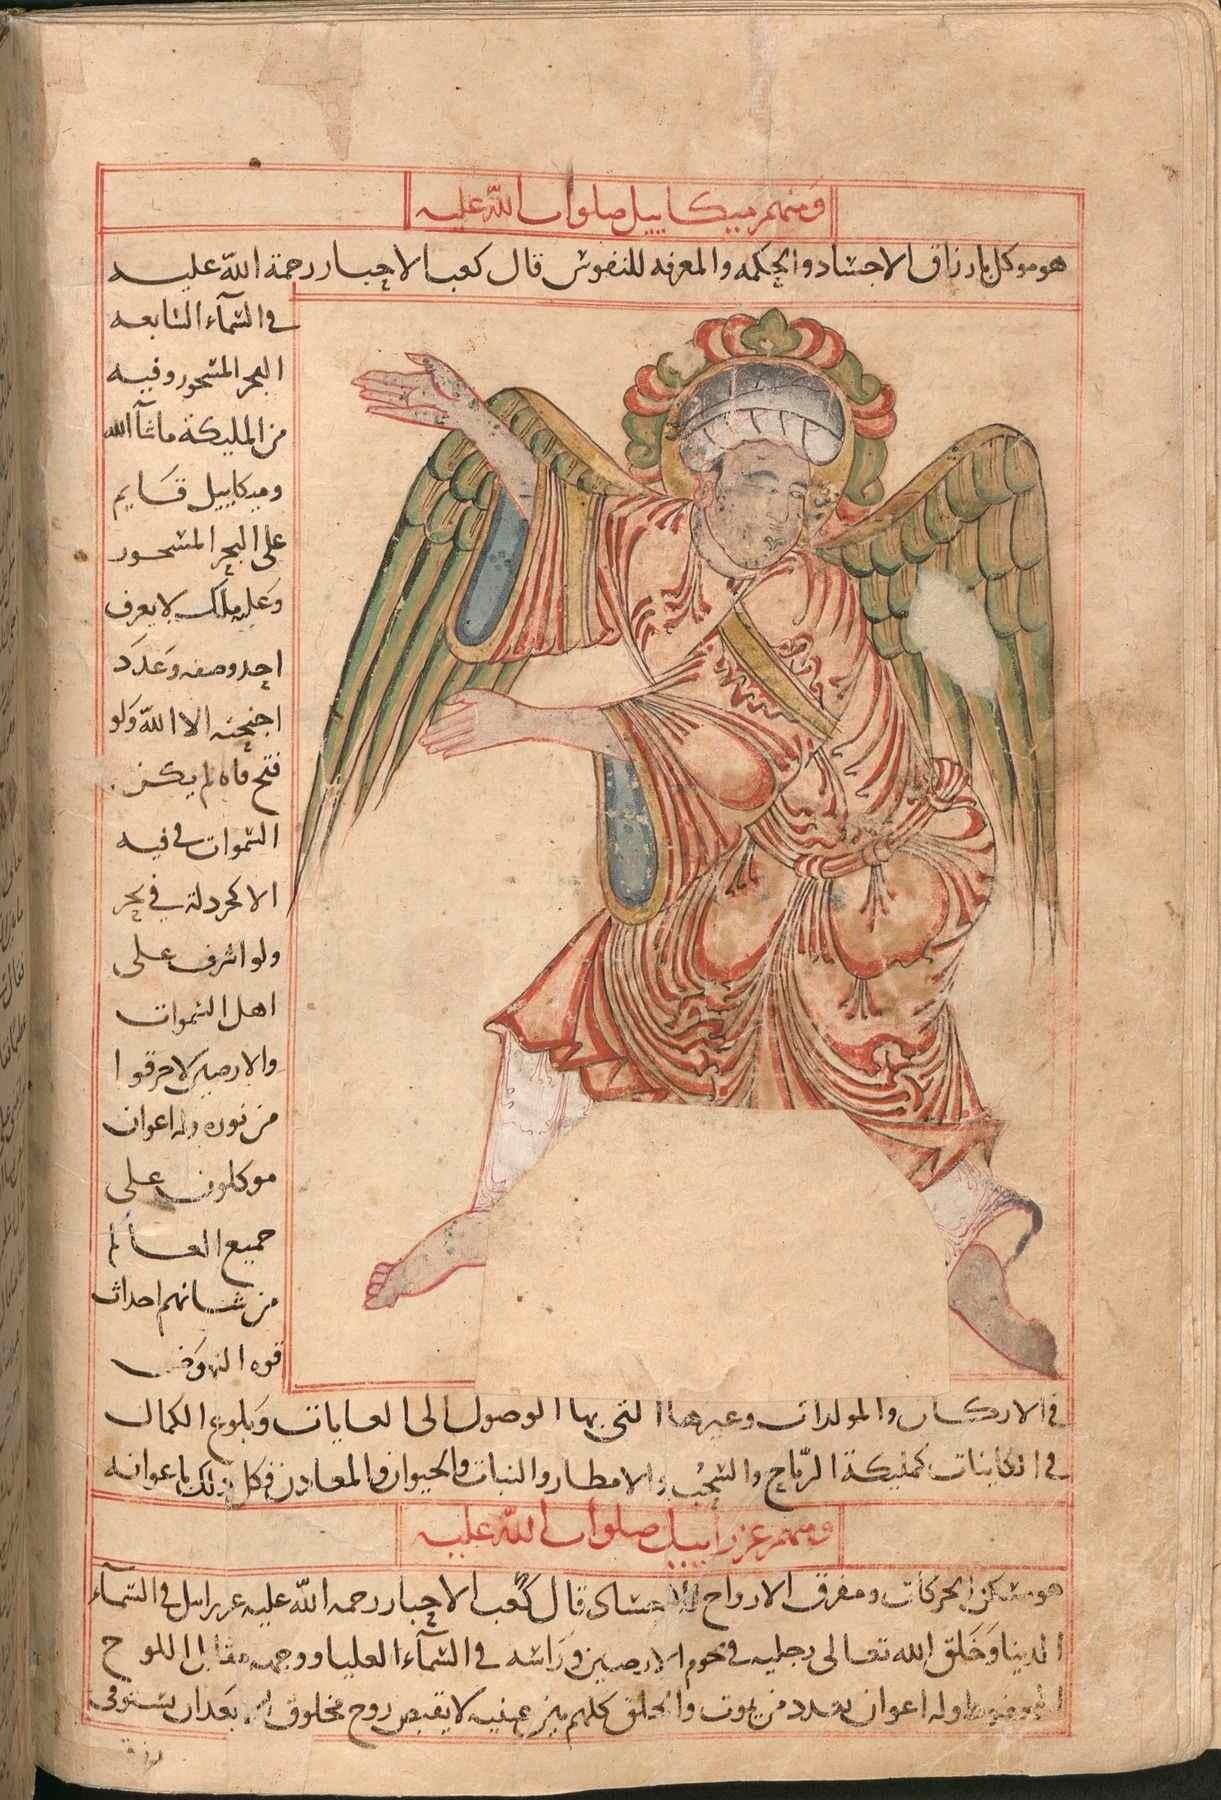 ومنهم ميكاييل صلوات الله عليه
هو موكل بارزاق الاجساد والحكمه والمعرفه للنفوس قال كعب الاحبار رحمة الله عليه
في السمآء السابعه
البحر المسجور وفيه
من المليكة ماشآ الله
وميكاييل قايم
على البحر المسجور
وعليه ملك لا يعرف
احد وصفه وعدد
اجنحته الا الله ولو
فتح فاه لم يكن
السموات في فيه
الا كخردلة في بحر
ولو اشرف على
اهل السموات
والارضين لاحرقوا
من نوره وله اعوان
موكلون على
جميع العالم
من شانهم احداث
قوه النهوض
في الاركان والمولدات وغيرها التي بها الوصول الى الغايات وبلوغ الكمال
في الكاينات كمليكة الرياح والسحب والامطار والنبات والحيوان والمعادن في كل ذلك باعوانه
ومنهم عزراييل صلوات الله عليه
هو مسكن الحركات ومفرق الارواح للاجساد قال كعب الاحبار رحمه الله عليه عزراييل في السمآء
الدنيا وخلق الله تعالى رجليه في تخوم الارضين وراسه في السمآء العليا ووجهه مقابل اللوح
المحفوظ وله اعوان بعدد من يموت والخلق كلهم بين عينيه لا يقبض روح مخلوق الا بعد ان يستوفي
رزقه